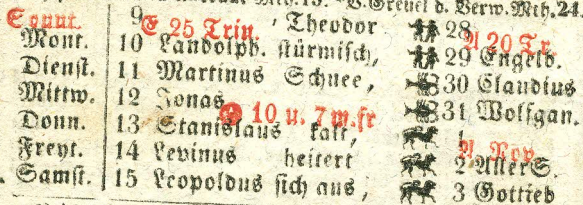 V. Greuel d. Verw. Mth. 24.
Sonnt. 9 E 25 Trin. Theodor 28 A 20 Tr.
Mont. 10 Landolph. stürmisch, 29 Engelb.
Dienst. 11 Martinus Schnee, 30 Claudius
Mittw. 12 Jonas 31 Wolfgan.
10 u. 7 m. fr
Donn. 13 Stanislaus kalt, 1 A Nov
Freyt. 14 Levinus heitert 2 Aller S.
Samst. 15 Leopoldus sich aus, 3 Gottlieb